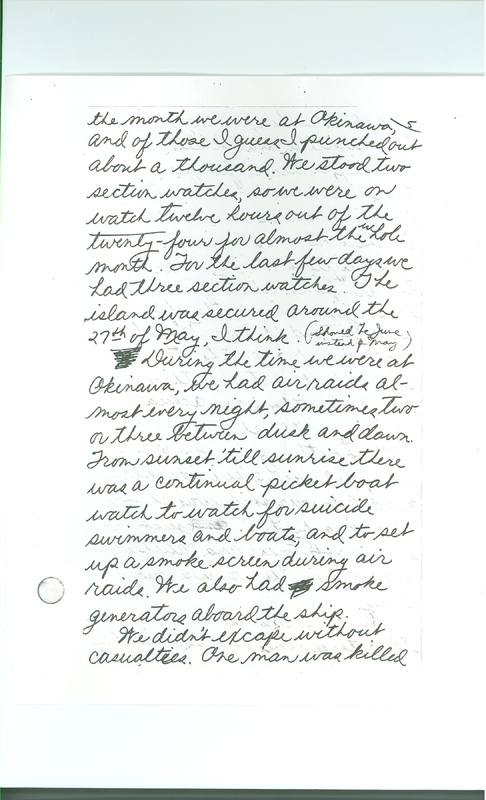 the month we were at Okinawa,
and of those I guess I punched out
about a thousand. We stood two
section watches, so we were on
watch twelve hours out of the
twenty-four for almost the whole
month. For the last few days we
had three section watches. The
island was secured around the
27th of May, I think. (Should be June instead of May)
During the time we were at
Okinawa, we had air raids al-
most every night, sometimes two
or three between dusk and dawn.
From sunset 'till sunrise there
was a continual picket boat
watch to watch for suicide
swimmers and boats, and to set
up a smoke screen during air
raids. We also had smoke
generators aboard the ship.
We didn't excape without
casualties. One man was killed